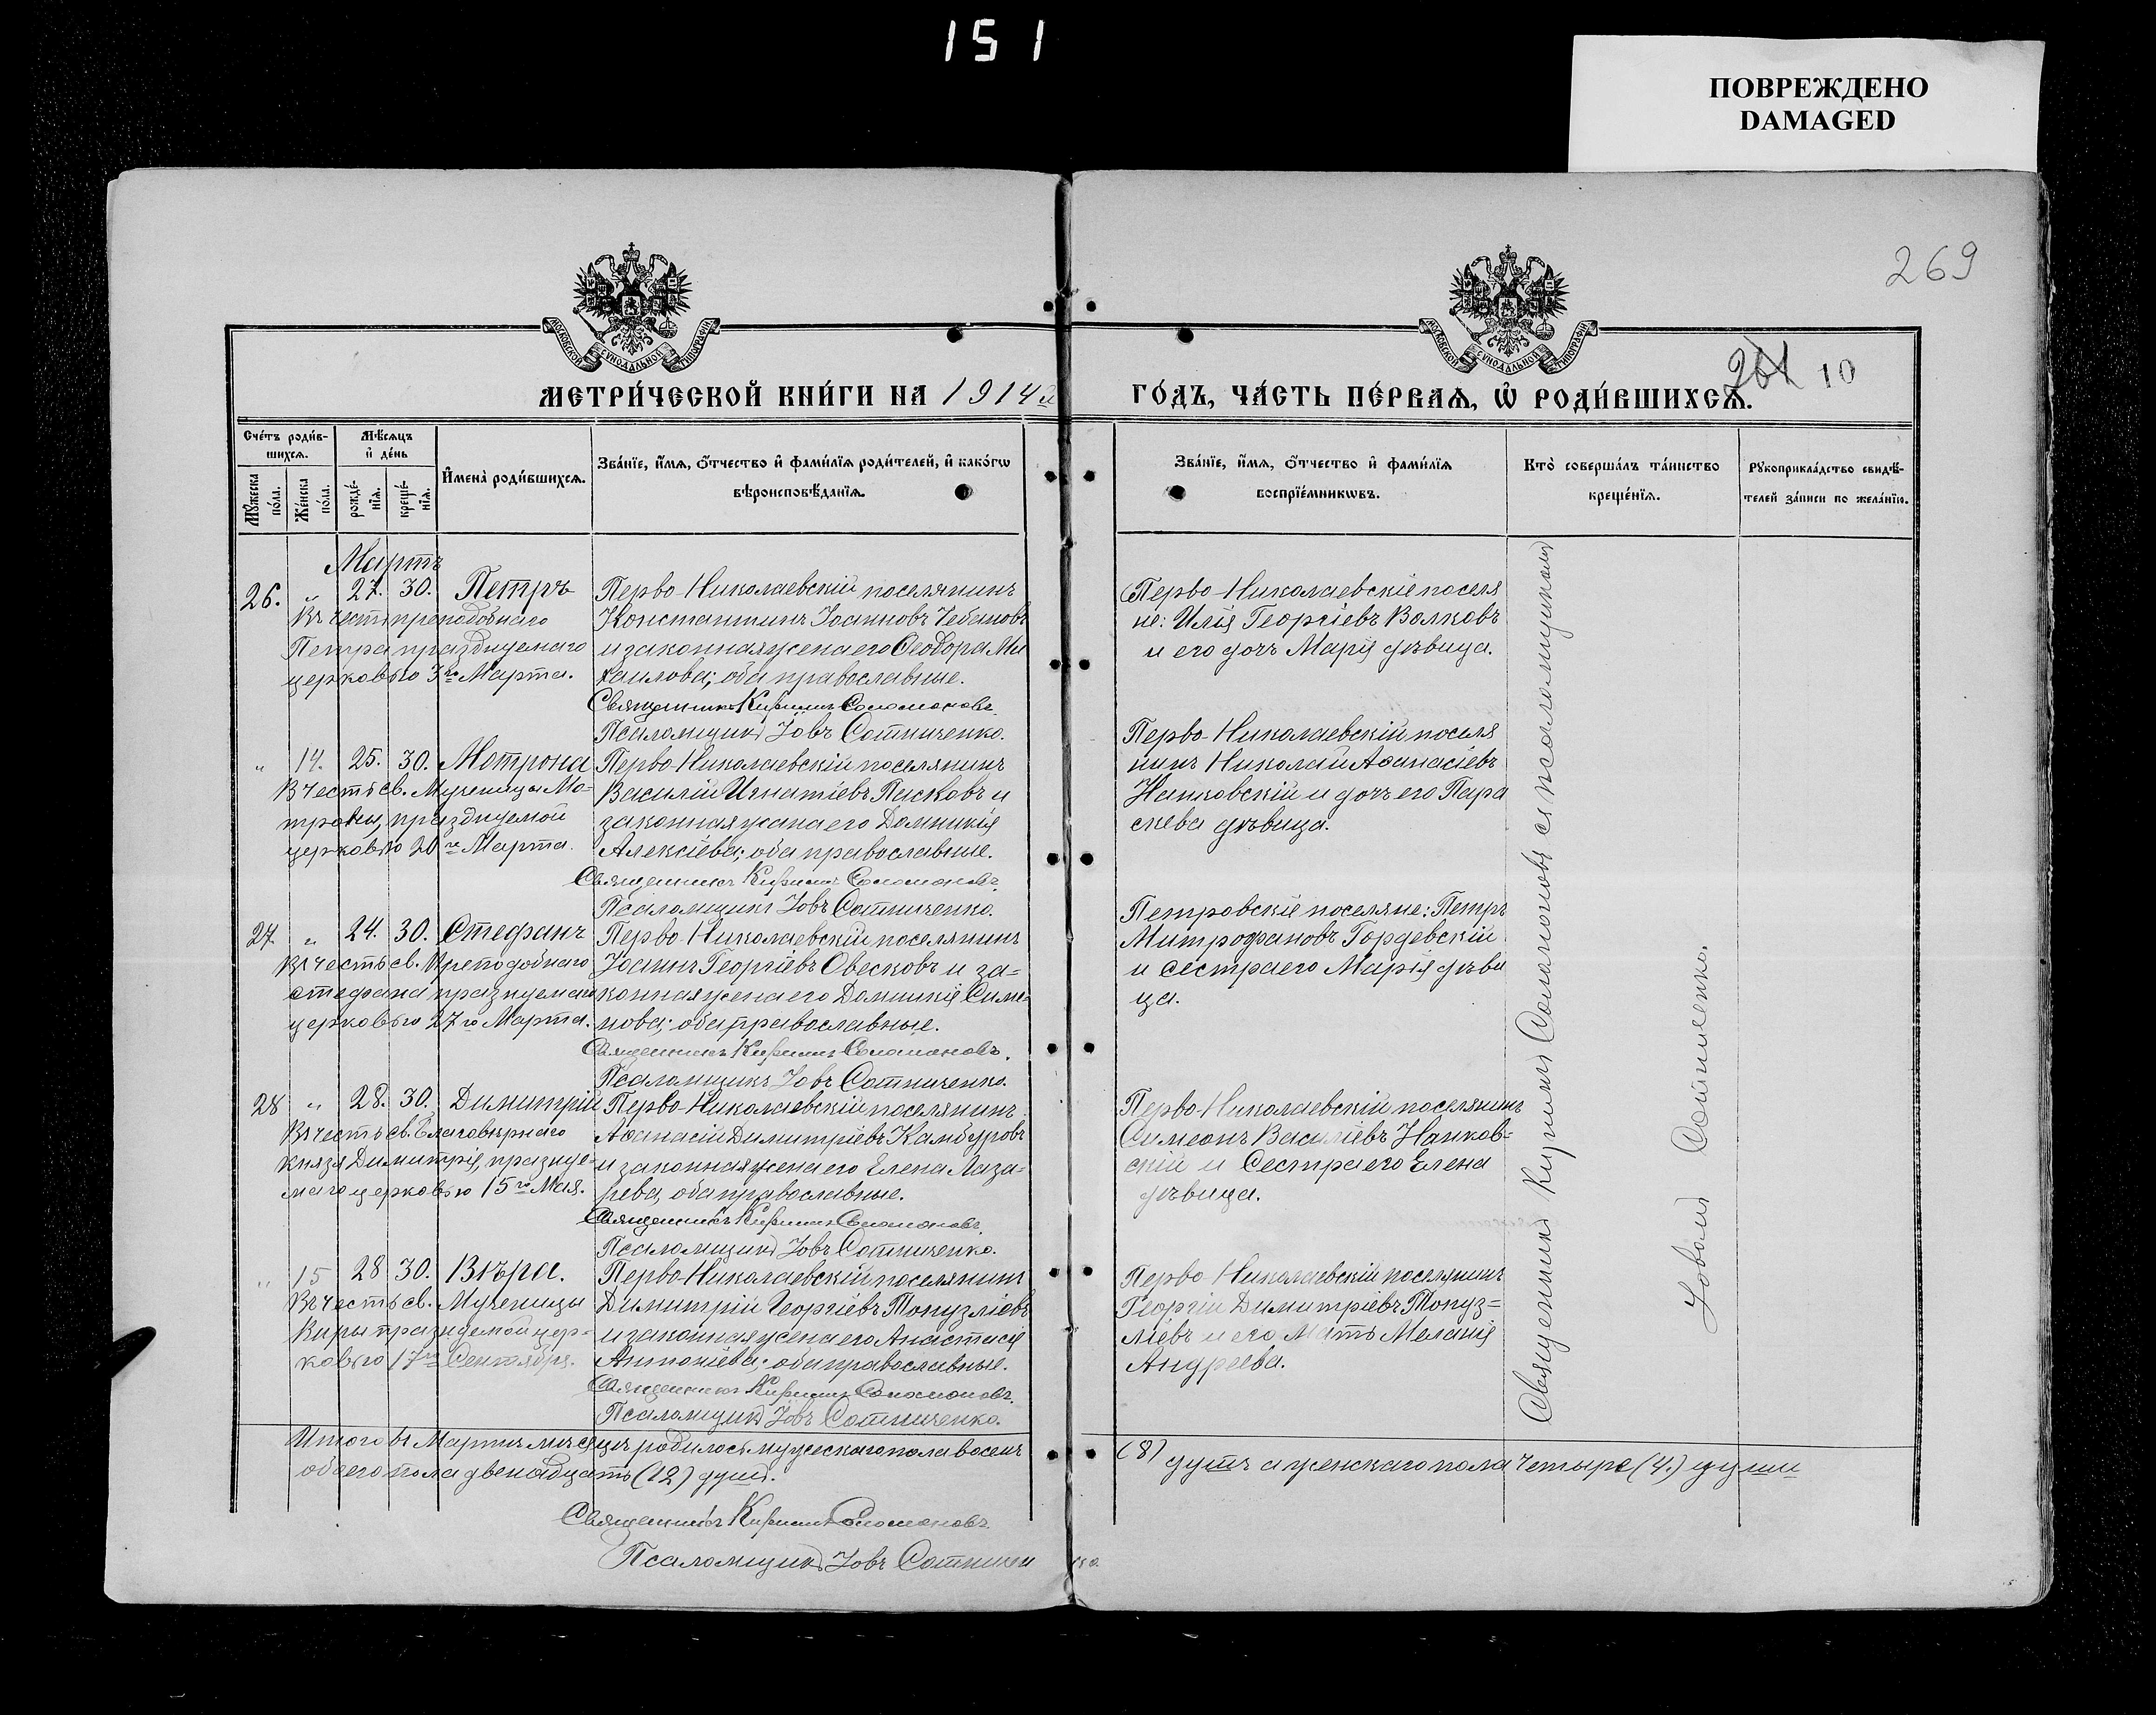 151
ПОВРЕЖДЕНО
DAMAGED
269
МОСКОВСКОЙ СѴНОДАЛЬНОЙ ТИПОГРАФІИ
МОСКОВСКОЙ СѴНОДАЛЬНОЙ ТИПОГРАФІИ
261 10
МЕТРИ́ЧЕСКОЙ КНИ́ГИ НА 1914й
ГО́ДЪ, ЧА́СТЬ ПЕ́РВАѦ, Ѡ҆ РОДИ́ВШИХСѦ.
Сче́тъ роди́в-
шихсѧ.
Мѹ́жеска по́ла.
Же́нска по́ла.
Мѣ́сѧцъ
и҆ де́нь
рожде́-нїѧ.
креще́-нїѧ.
И҆мена̀ роди́вшихсѧ.
Зва́нїе, и҆́мѧ, о҆́тчество и҆ фами́лїѧ роди́телей, и҆ како́гѡ
вѣроисповѣ́данїѧ.
Зва́нїе, и҆́мѧ, о҆́тчество и҆ фами́лїѧ
воспрїе́мникѡвъ.
Кто̀ соверша́лъ та́инство
креще́нїѧ.
Рѹкоприкла́дство свидѣ́-
телей за́писи по жела́нїю.
Мартъ
26. " 27. 30. Петръ
Въ честь преподобнаго
Петра празднуемаго
церковью 3го Марта.
Перво-Николаевскій поселянинъ
Константинъ Іоанновъ Чебановъ
и законная жена его Ѳеодора Ми
хаилова; оба православные.
Священникъ Кирилъ Соломоновъ.
Псаломщикъ Іовъ Сотниченко.
Перво-Николаевскіе поселя
не: Илія Георгіевъ Волковъ
и его дочь Марія дѣвица.
" 14. 25. 30. Мотрона
В честь св. Мученицы Мо-
троны, праздуемой
церковью 20го Марта.
Перво-Николаевскій поселянинъ
Василій Игнатіевъ Пасковъ и
законная жана его Домникія
Алексіева; оба православные.
Священникъ Кирилъ Соломоновъ.
Псаломщикъ Іовъ Сотниченко.
Перво-Николаевскій поселя
нинъ Николай Аѳанасіевъ
Нанковскій и дочь его Пара
скева дѣвица.
27. " 24. 30. Стефанъ
Въ честь св. Преподобнаго
Стефана празнуемаго
церковью 27го Марта.
Перво-Николаевскій поселянинъ
Іоанъ Георгіевъ Овесковъ и за=
конная жена его Домникія Симе=
нова; оба православные.
Священникъ Кирилъ Соломоновъ.
Псаломщикъ Іовъ Сотниченко.
Петровскіе поселяне: Петръ
Митрофановъ Гордевскій
и сестра его Марія дѣви
ца.
28 " 28. 30. Димитрій
Въ честь св. Благовѣрнаго
Князя Димитрія, празнуе=
маго церковью 15го Мая.
Перво-Николаевскій поселянинъ
Аѳанасій Димитріевъ Камбуровъ
и законная жена его Елена Лаза=
рева, оба православные.
Священникъ Кирилъ Соломоновъ.
Псаломщикъ Іовъ Сотниченко.
Перво-Николаевскій поселянинъ
Симеонъ Василіевъ Нанков=
скій и Сестра его Елена
дѣвица.
" 15 28 30. Вѣра.
Въ честь св. Мученицы
Вѣры празнуемой цер=
ковью 17го Сентября.
Перво-Николаевскій поселянинъ
Димитрій Георгіевъ Топузліевъ
и законная жена его Анастасія
Антоніева; оба православные.
Священникъ Кирилъ Соломоновъ.
Псаломщикъ Іовъ Сотниченко.
Перво-Николаевскій поселянинъ
Георгій Димитріевъ Топуз=
ліевъ и его Мать Меланія
Андреева.
Священникъ Кирилъ Соломоновъ съ псаломщикомъ
Іовомъ Сотниченко.
Итого въ Мартѣ мѣсяцѣ родилось мужескаго пола восемь (8) душъ а женскаго пола Четыре (4.) души
обоего пола двенадцать (12) душъ.
Священникъ Кирилъ Соломоновъ.
Псаломщикъ Іовъ Сотниченко.